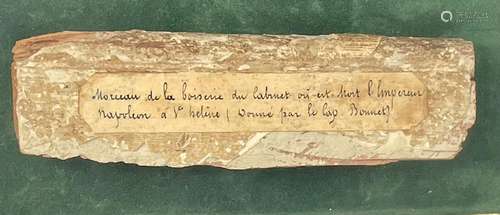 Morceau de la boiserie du Cabinet où est Mort l'Empereur
Napoleon à Ste hélène (Donné par le Cap. Bonnet)